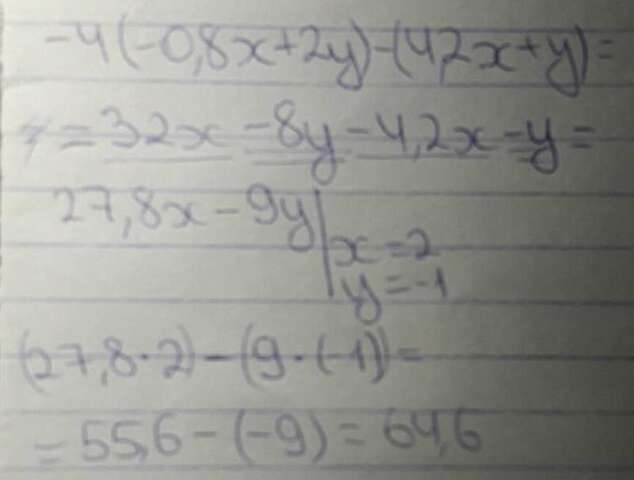 -4(-0,8x+2y)-(4,2x+y)=
=32x-8y-4,2x-y=
27,8x-9y|x=2
y=-1
(27,8·2)-(9·(-1))=
=55,6-(-9)=64,6